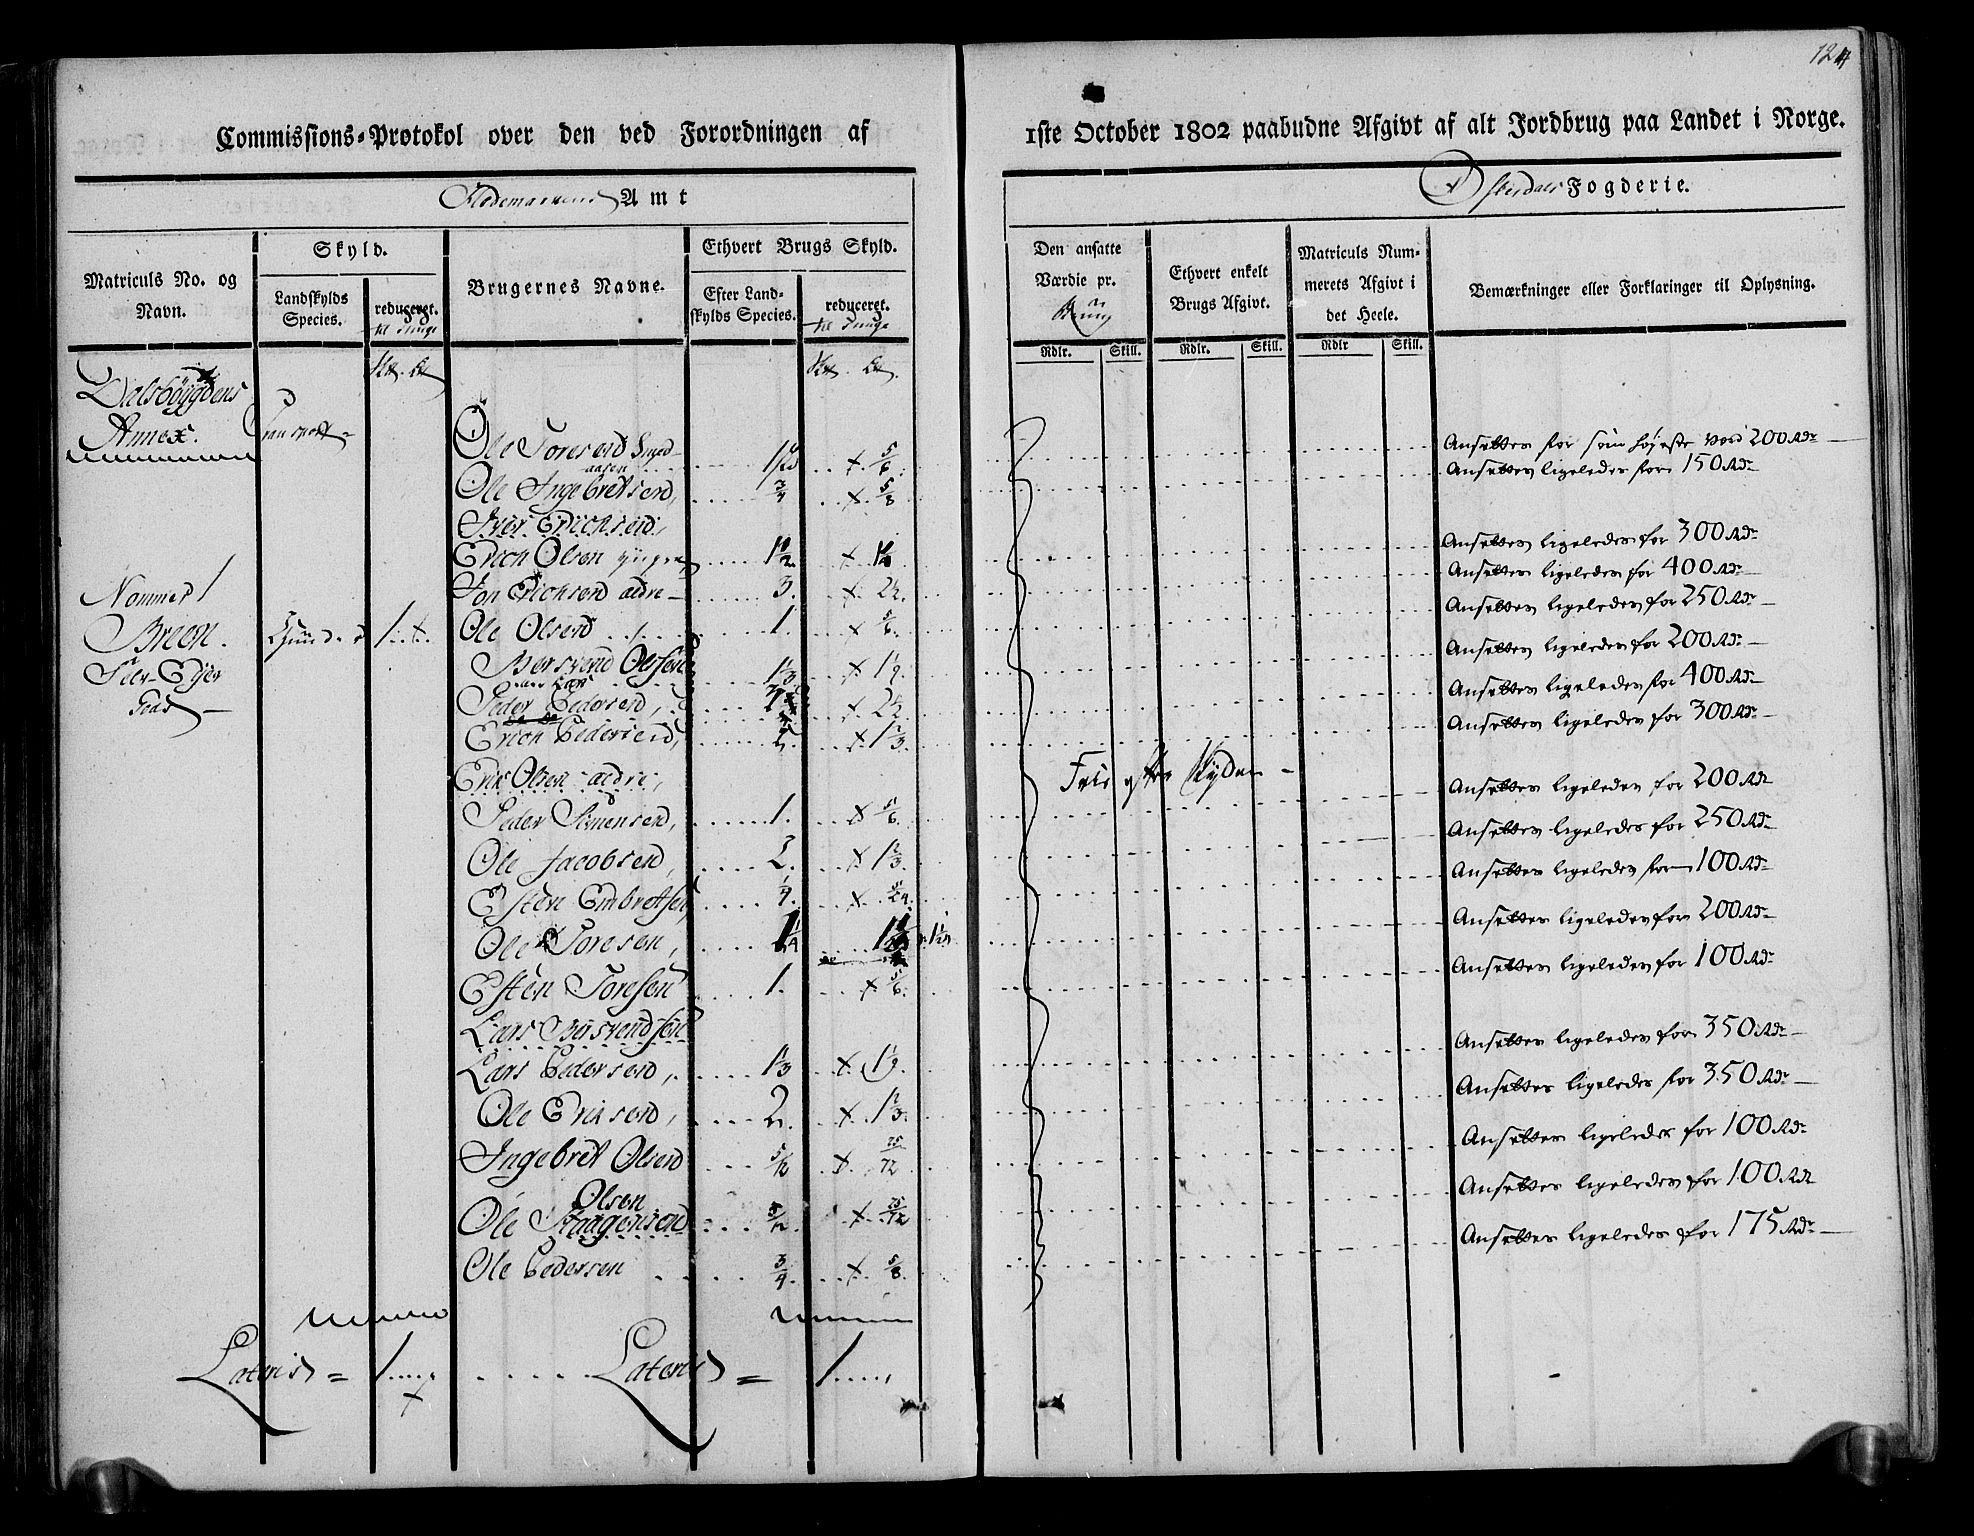 124
Commissions-Protokol over den ved Forordningen af
1ste October 1802 paabudne Afgivt af alt Jordbrug paa Landet i Norge.
Hedemarkens Amt
Østerdals Fogderie.
Matriculs No. og Navn.
Skyld.
Landskylds Species.
reduceret.
til Tunge
Brugernes Navne.
Ethvert Brugs Skyld.
Efter Landskylds Species.
reduceret.
til Tunge
Den ansatte Værdie pr.
Ethvert enkelt Brugs Afgivt.
Matriculs Nummerets Afgivt i det Heele.
Bemærkninger eller Forklaringer til Oplysning.
Rdlr. Skill. Rdlr. Skill. Rdlr Skill.
Dalsbøygdens
Annex.
Transport =
Ole Toresen 5/6 Ansettes for som høyeste værd 200 Rdr
Ole Ingebretsen, 3/4 x 5/8 Ansettes ligeledes for 150 Rdr
Iver Erichsen,
Erich Olsen yngre 1 1/2 x Ansettes ligeledes for 300 Rdr
Jon Erichsen ældre 3. x 2 1/2. Ansettes ligeledes for 400 Rdr
Nommer 1
Breen.
Selv-Eyer
Gods
1. x.
Ole Olsen 1. x 5/6. Ansettes ligeledes for 250 Rdr
Bersvend Olsen 1 1/3 x 1 1/9. Ansettes ligeledes for 200 Rdr
Peder Pedersen, x Ansettes ligeledes for 400 Rdr
Erich Pedersen, 2. x 1 2/3. Ansettes ligeledes for 300 Rdr
Erik Olsen ældre,
Peder Simensen, 1. x 5/6. Ansettes ligeledes for 200 Rdr
Ole Jacobsen, 2. x 1 2/3. Ansettes ligeledes for 250 Rdr
Esten Embretsen, 1/4. x 5/24. Ansettes ligeledes for 100 Rdr
Ole Toresen, 1 1/4 Ansettes ligeledes for 200 Rdr
Esten Toresen 1. x 5/6. Ansettes ligeledes for 100 Rdr
Lars Bersvendsen
Lars Pedersen, 1 1/3 x 1 1/9. Ansettes ligeledes for 350 Rdr
Ole Eriksen, 2. x 1 2/3. Ansettes ligeledes for 350 Rdr
Ingebret Olsen 5/12 x 25/72 Ansettes ligeledes for 100 Rdr
Olsen
Ole Haagensen 5/12 x 25/72 Ansettes ligeledes for 100 Rdr
Ole Pedersen 3/4. x 5/8. Ansettes ligeledes for 175 Rdr
Lateris = 1
x
Lateris = 1